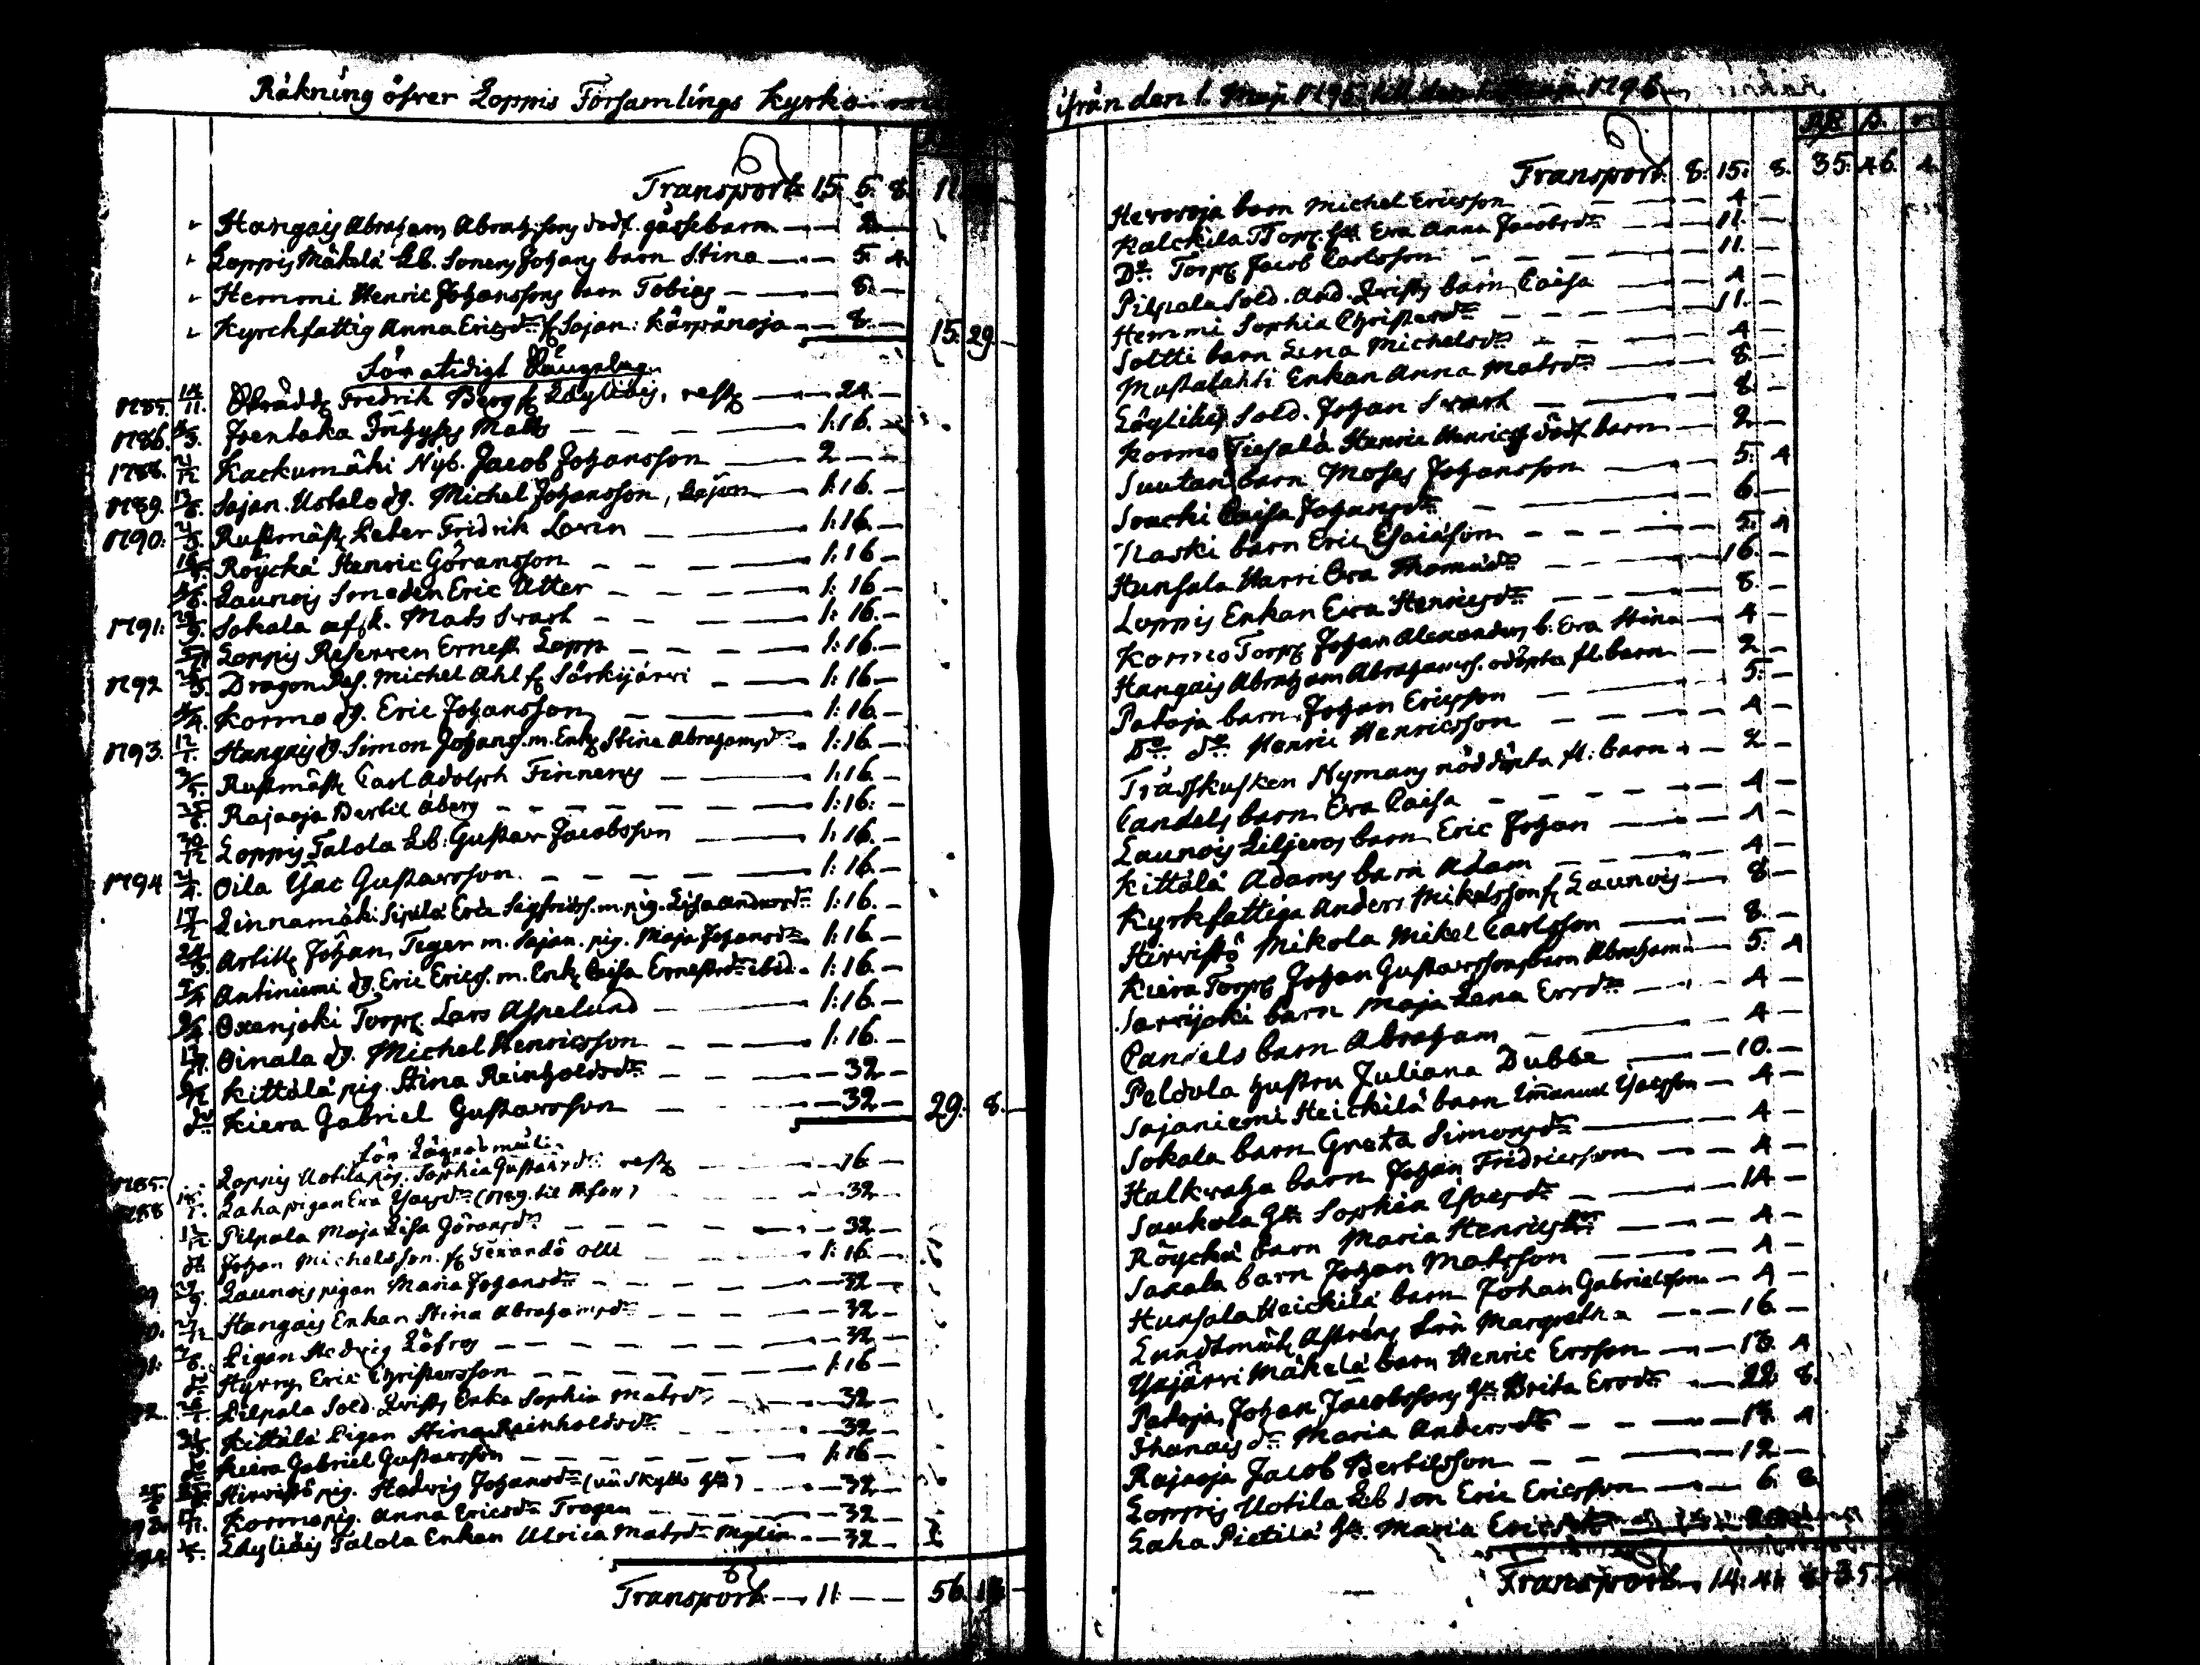 Räkning öfver Loppis Församlings Kyrko
Transport 15. 5. 8. 11.
Hangais Abraham Abrahs.sons dödf. gåssebarn — 2. —
Loppis Mäkelä Lb. Sonens Johans barn Stina — 5. 4.
Hemmi Henric Johanssons barn Tobias — 8. —
Kyrckfattig Anna Ericsdr fr Sajan: Kärpänoja — 8. — 15. 29. —
För otidigt Sängelag
1785. 14/11. Fredrik Berg fr Löyliäis, rest — 24. —
1786. Jrentaka Matts — 1: 16. —
1788. Kackumäki Nyb. Jacob Johansson — 2 — —
1789. Sajan. Ustalo dg. Michel Johansson, — 1: 16. —
1790. Rustmäst Peter Fridrik Lorin — 1: 16. —
Röyckä Henric Göransson — 1: 16 —
Launois Smeden Eric Utter — 1: 16 —
1791: Sokala afsk. Mats Svart — 1: 16. —
Loppis Reserven Ernest Lopp — 1: 16. —
1792 Dragon Res. Michel Ahl fr Särkijärvi — 1: 16 —
Kormo dg. Eric Johansson — 1: 16. —
1793. 12/1. Hangais dg. Simon Johans. m. Enk Stina Abrahamsdr — 1: 16. —
Rustmäst Carl Adolph Finneus — 1: 16. —
Rajaoja Bertil Åberg — 1: 16: —
Loppis Talola Lb. Gustav Jacobsson — 1: 16. —
1794 Oila Isac Gustavsson — 1: 16. —
Linnamäki Sipilä Eric Sigfridss. m. pig. Lisa Andersdr 1: 16. —
Artill Johan Teger m. Sajan. pig. Maja Johansdr 1: 16 —
Antiniemi dg. Eric Erics. m. Enk Caisa Ernestsdr ibid. 1: 16. —
Oxenjoki Torp. Lars Aspelund — 1: 16. —
Oinala dg. Michel Henricsson — 1: 16. —
Kittälä pig. Stina Reinholdsdr — 32 —
do Kiera Gabriel Gustavsson — 32 — 29. 8. —
för Lägersmål:
1785. Loppis Uotila pig. Sophia Gustavsdr rest — 16 —
1788 Laha pigan Eva Isacsdr — 32 —
Pilpala Maja Lisa Göransdr — 32 —
do Johan Michelsson fr — 1: 16 —
Launois pigan Maria Johansdr — 32 —
Hangais Enkan Stina Abrahamsdr — 32 —
Pigan Hedvig Löfros — 32 —
do Hyrry Eric Christersson — 1: 16 —
Pilpala Sold. Qvists Enka Sophia Matsdr — 32 —
Kittälä Pigan Stina Reinholdsdr — 32 —
Kiera Gabriel Gustavsson — 1: 16 —
Hirvistö pig. Hedvig Johansdr — 32 —
Kormo pig. Anna Ericsdr Trogen — 32 —
Löyliäis Talola Enkan Ulrica Matsdr — 32 —
Transport — 11: — — 56.
ifrån den 1. Maji 1795 till den 1796
Transport 8: 15: 8. 35. 46. 4.
Hervoja barn Michel Ericsson — 4 —
Kalckila Torp. hu Eva Anna Jacobsdr — 11. —
Do Torp Jacob Carlsson — 11. —
Pilpala Sold. And. Qvists barn Caisa — 4 —
Hemmi Sophia Christersdr — 11. —
Soltti barn Lena Michelsdr — 4 —
Mustalahti Enkan Anna Matsdr — 8. —
Löyliäis Sold. Johan Svart — 8. —
Kormo Henric Henrics dödf. barn — 2 —
Suutari barn Moses Johansson — 5: 4
Caisa Johansdr — 6. —
Naski barn Eric Esaiasson — 5. 4
Hunsala Harri Eva Thomasdr — 16. —
Loppis Enkan Eva Henricsdr — 8. —
Kormo Torp Johan Alexanders b. Eva Stina — 4 —
Hangais Abraham Abrahams. odöpta fl. barn — 2 —
Pataja barn Johan Ericsson — 5. —
Do do Henric Henricsson — 4 —
Nymans nöddöpta fl. barn — 2 —
Candels barn Eva Caisa — 4 —
Launois Liljeros barn Eric Johan — 4 —
Kittälä Adams barn Adam — 4 —
Kyrkfattiga Anders Mikelsson fr Launois — 8 —
Hirvistö Mikola Mikel Carlsson — 8. —
Kiera Torp Johan Gustavssons barn Abraham — 5: 4
Sarvijoki barn Maja Lena Ersdr — 4 —
Candels barn Abraham — 4 —
Peldola hustru Juliana Dubbe — 10. —
Sajaniemi Heickilä barn Emanuel Isacsson — 4 —
Sokala barn Greta Simonsdr — 4 —
Halkivaha barn Johan Fridricsson — 4 —
Saukola hu Sophia Isacsdr — 14 —
Röyckä barn Maria Henricsdr — 4 —
Saxala barn Johan Matsson — 4 —
Hunsala Heickilä barn Johan Gabrielsson — 4 —
Margretha — 16. —
Mäkelä barn Henric Ersson — 18. 4
Pataja Johan Jacobssons hu Brita Ersdr — 22. 8.
do Maria Andersdr — 18. 4
Rajaoja Jacob Bertilsson — 12 —
Loppis Uotila Lb Son Eric Ericsson — 6. 8
Laha Pietilä hu Maria
Transport 14: 41. 8. 35.